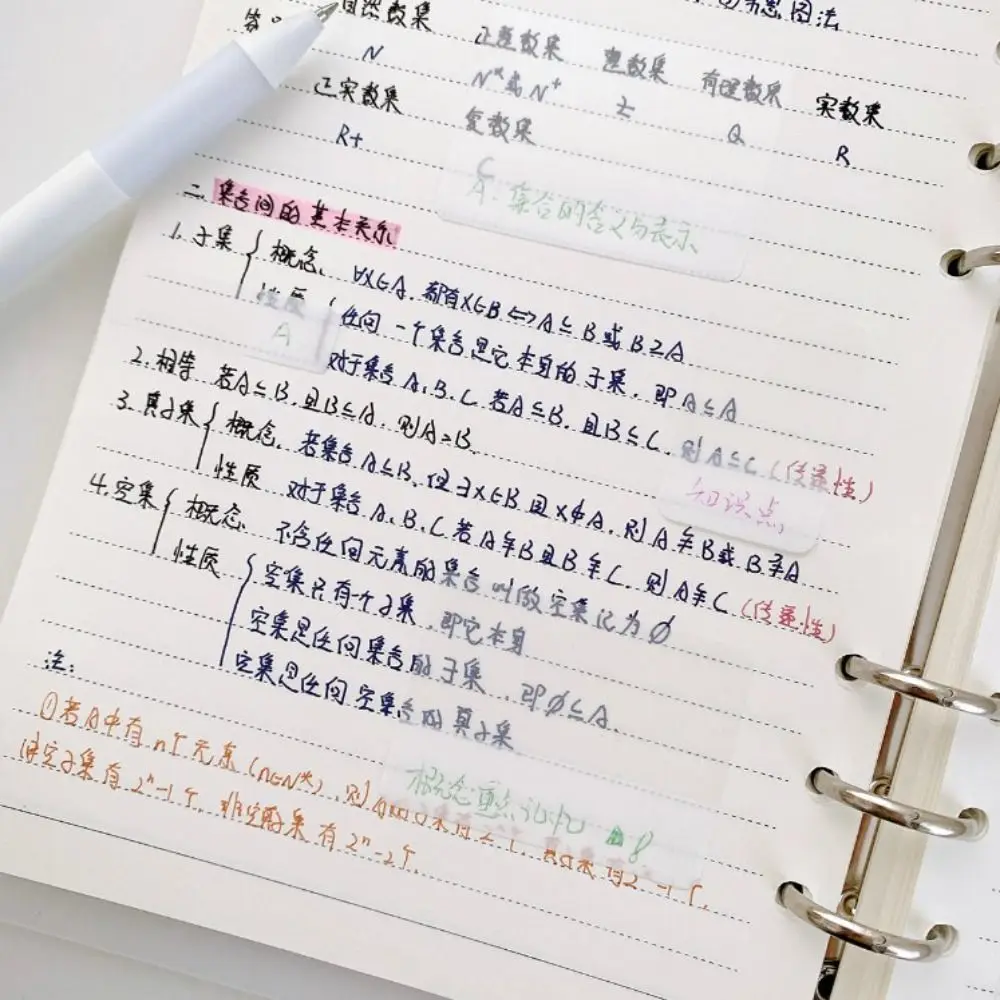 韦恩图法
答: 自然数集 正整数集 整数集 有理数集 实数集
N N*或N⁺ Z Q R
正实数集 复数集
R+ C
A: 集合的含义与表示
二、集合间的基本表示
1. 子集 概念、∀x∈A, 都有x∈B⇔A⊆B或B⊇A
性质 任何一个集合是它本身的子集, 即A⊆A
A
对于集合A、B、C, 若A⊆B, 且B⊆C, 则A⊆C (传递性)
2. 相等 若A⊆B, 且B⊆A, 则A=B.
3. 真子集 概念、若集合A⊆B, 但∃x∈B且x∉A, 则A⫋B或B⫌A
知识点
性质 对于集合A、B、C, 若A⫋B且B⫋C, 则A⫋C (传递性)
4. 空集 概念、不含任何元素的集合叫做空集记为∅
性质 空集只有个子集, 即它本身
空集是任何集合的子集, 即∅⊆A
空集是任何空集合的真子集
注:
①若A中有n个元素(n∈N*), 则
概念重点记忆
子集有2ⁿ-1个, 非空 集有2ⁿ-2个.